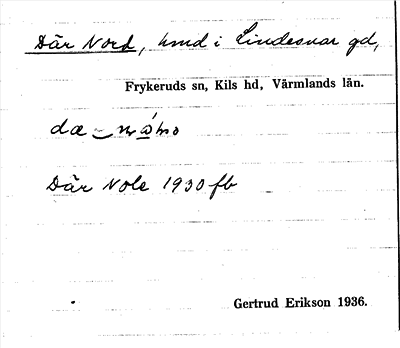 Där Nord, hmd i Lindesnar gd,
Frykeruds sn, Kils hd, Värmlands län.
Där Nole 1930 fb
Gertrud Erikson 1936.